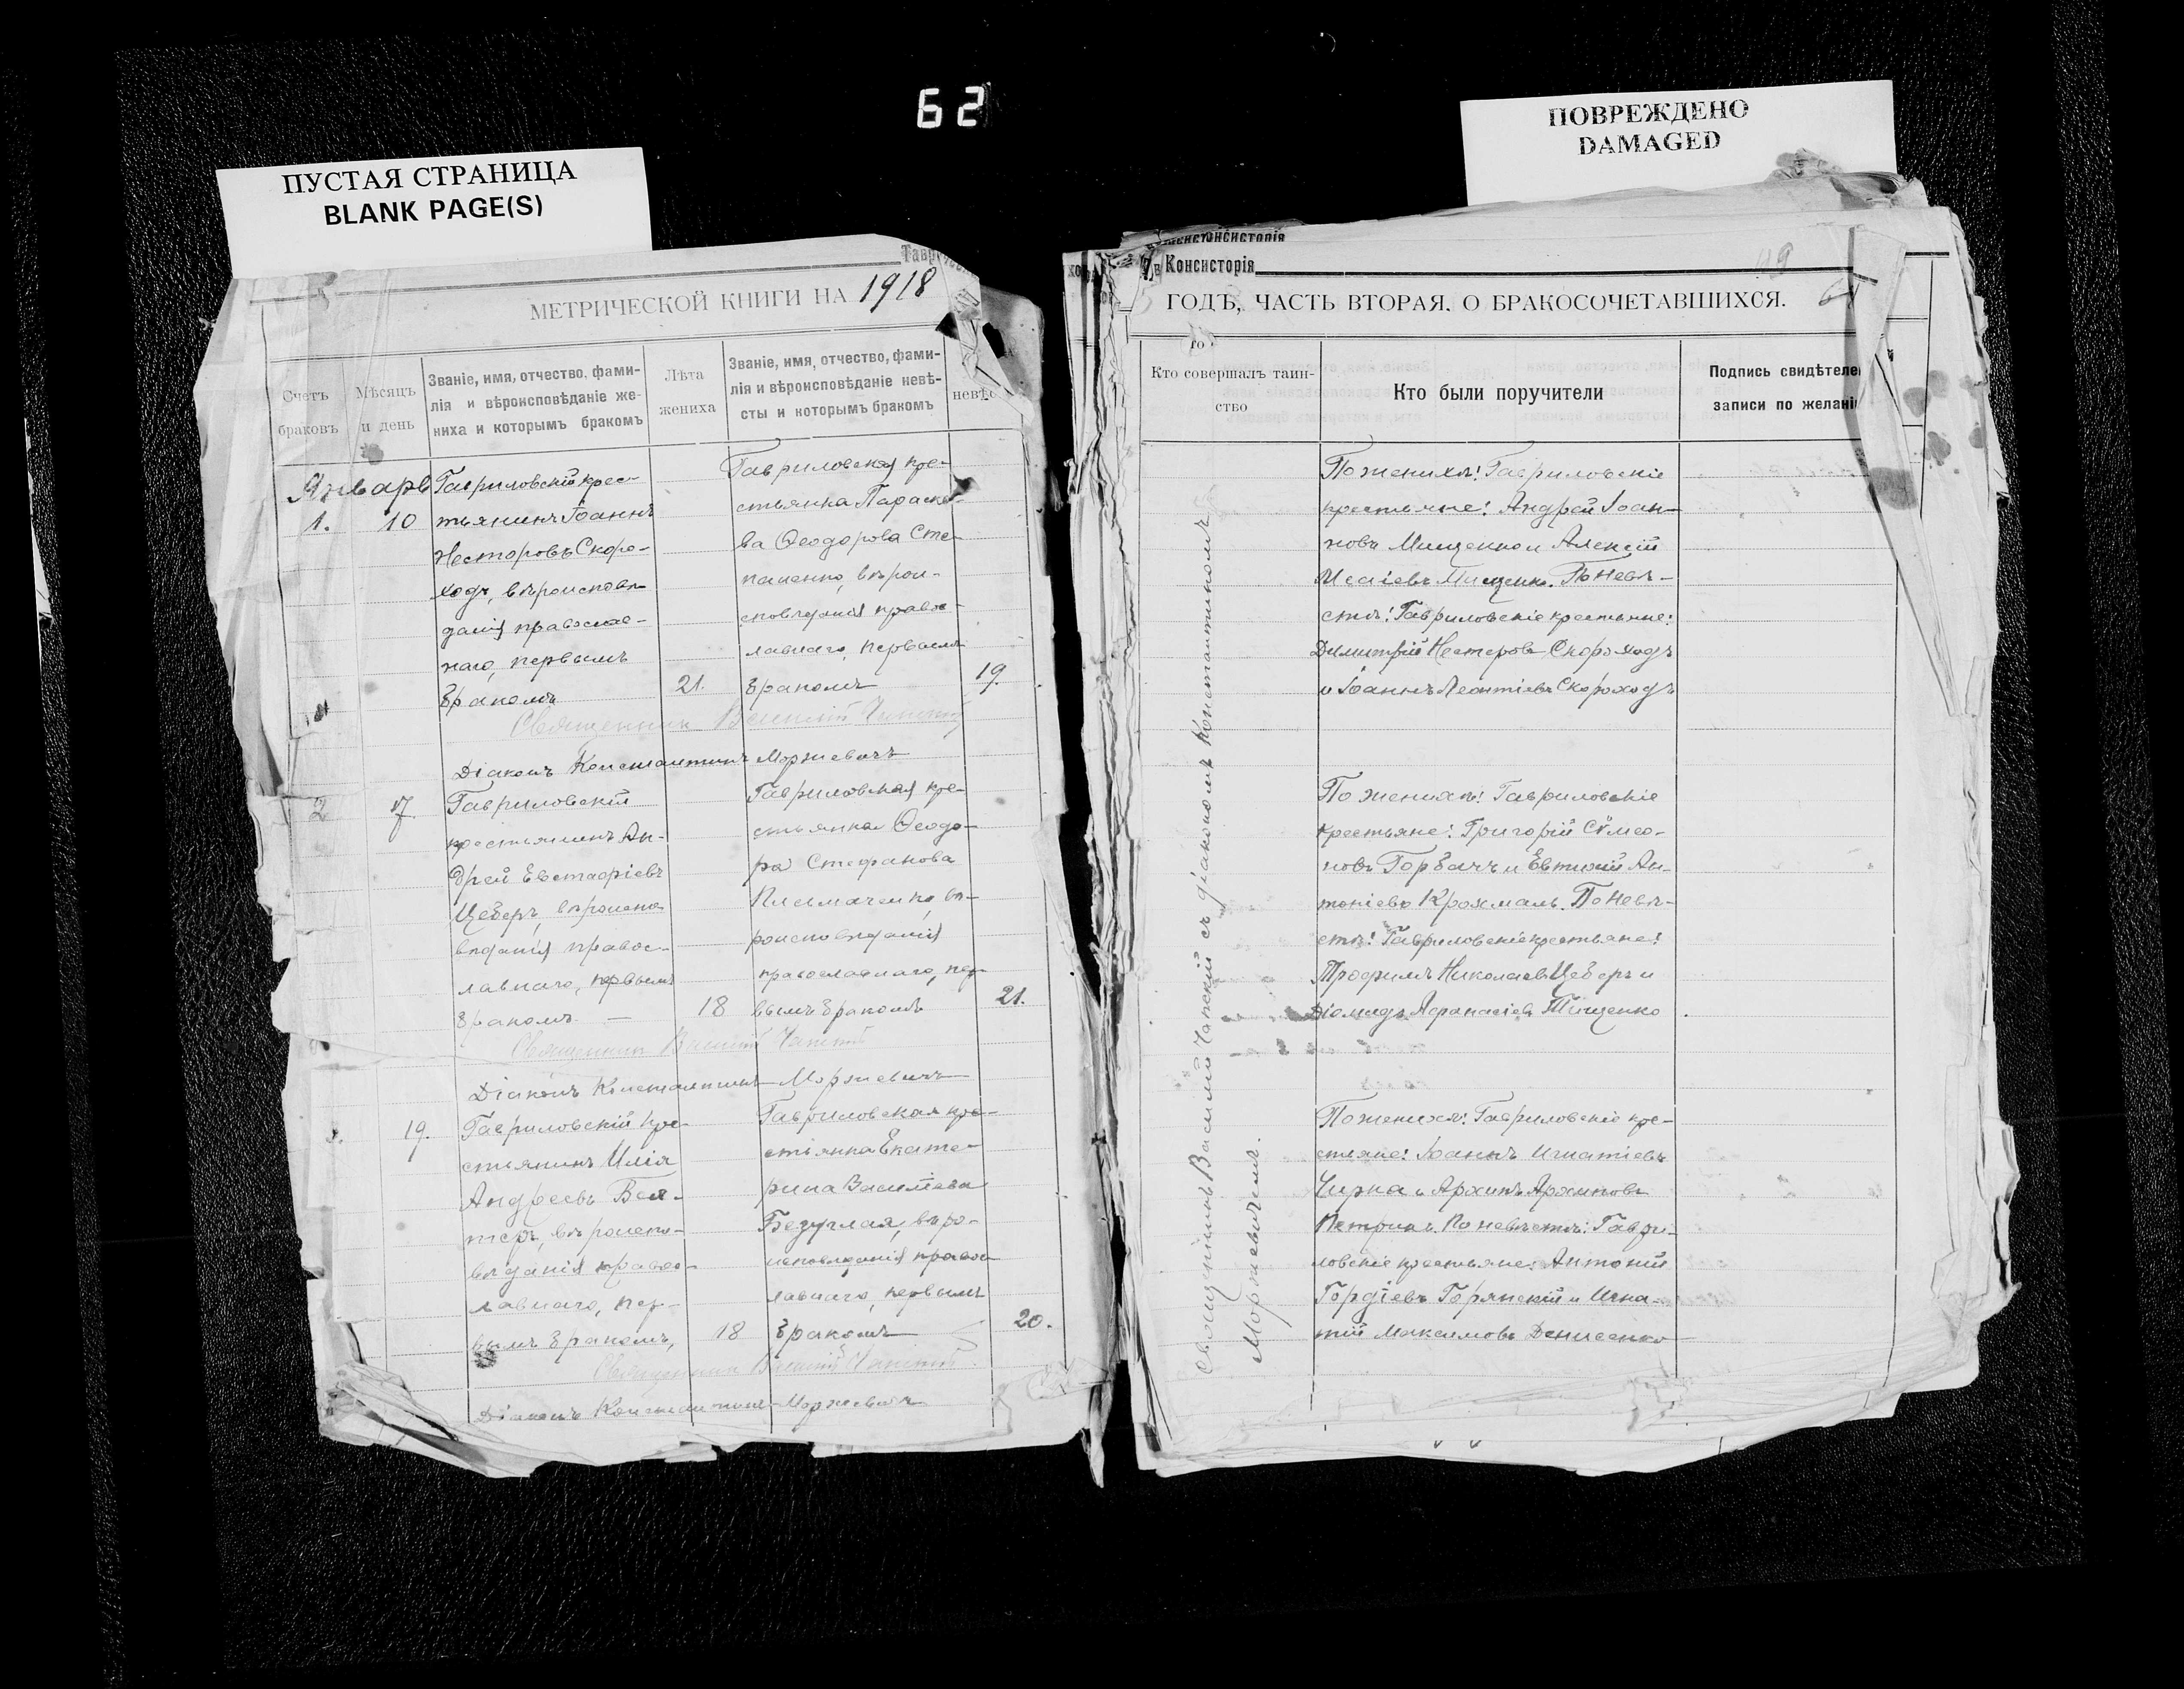 62
ПУСТАЯ СТРАНИЦА
BLANK PAGE(S)
ПОВРЕЖДЕНО
DAMAGED
МЕТРИЧЕСКОЙ КНИГИ НА 1918
Счетъ браковъ
Мѣсяцъ и день
Званіе, имя, отчество, фами-
лія и вѣроисповѣданіе же-
ниха и которымъ бракомъ
Лѣта
жениха
Званіе, имя, отчество, фами-
лія и вѣроисповѣданіе невѣ-
сты и которымъ бракомъ
невѣс
Январь
1. 10
Гавриловскій крес-
тьянинъ Іоаннъ
Несторовъ Скоро-
ходъ, вѣроисповѣ-
данія православ-
наго, первымъ
бракомъ
21.
Гавриловская кре-
стьянка Параске-
ва Ѳеодорова Сте-
паненко, вѣрои-
сповѣданія правос-
лавнаго, первымъ
бракомъ
19.
Священникъ Василій
Діаконъ Константинъ Моржевичъ
2 17.
Гавриловскій
крестьянинъ Ан-
дрей Евстафіевъ
Цеберъ, вѣроиспо-
вѣданія правос-
лавнаго, первымъ
бракомъ. —
18
Гавриловская кре-
стьянка Ѳеодо-
ра Стефанова
Письмаченко, вѣ-
роисповѣданія
православнаго, пер-
вымъ бракомъ
21.
Священникъ Василій
Діаконъ Константинъ Моржевичъ
19.
Гавриловскій кре-
стьянинъ Илія
Андреевъ
вѣроиспо-
вѣданія правос-
лавнаго, пер-
вымъ бракомъ,
18
Гавриловская кре-
стьянка Екате-
рина Василіева
Безуглая, вѣро-
исповѣданія правос-
лавнаго, первымъ
бракомъ
20.
Священникъ Василій
Діаконъ Константинъ Моржевичъ
Консисторія
ГОДЪ, ЧАСТЬ ВТОРАЯ, О БРАКОСОЧЕТАВШИХСЯ.
Кто совершалъ таин-
ство
Кто были поручители
Подпись свидѣтеле
записи по желані
Священникъ Василій съ діакономъ Константиномъ
Моржевичемъ.
По женихѣ: Гавриловскіе
крестьяне: Андрей Іоан-
новъ Мищенко и Алексій
Моисіевъ Тищенко. По невѣ-
стѣ: Гавриловскіе крестьяне:
Димитрій Нестеровъ Скороходъ
и Іоаннъ Леонтіевъ Скороходъ
По женихѣ: Гавриловскіе
крестьяне: Григорій Сѵмео-
новъ Горбачъ и Евтихій Ан-
тоніевъ Крохмаль. По невѣ-
стѣ: Гавриловскіе крестьяне:
Трофимъ Николаевъ Цеберъ и
Діомидъ Афанасіевъ Тищенко
По женихѣ: Гавриловскіе кре-
стьяне: Іоаннъ Игнатіевъ
Чирка и Архипъ Архиповъ
Петрикъ. По невѣстѣ: Гаври-
ловскіе крестьяне: Антоній
Гордіевъ Горянскій и Игна-
тій Максимовъ Денисенко